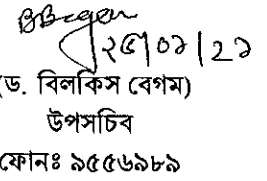 BBegum
২৫|০১|২১
(ড. বিলকিস বেগম)
উপসচিব
ফোনঃ ৯৫৫৬৯৮৯